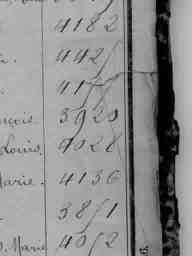 4182
442
41
nçois. 3920
Louis. 4028
Marie. 4136
3851
D. Marie 4052